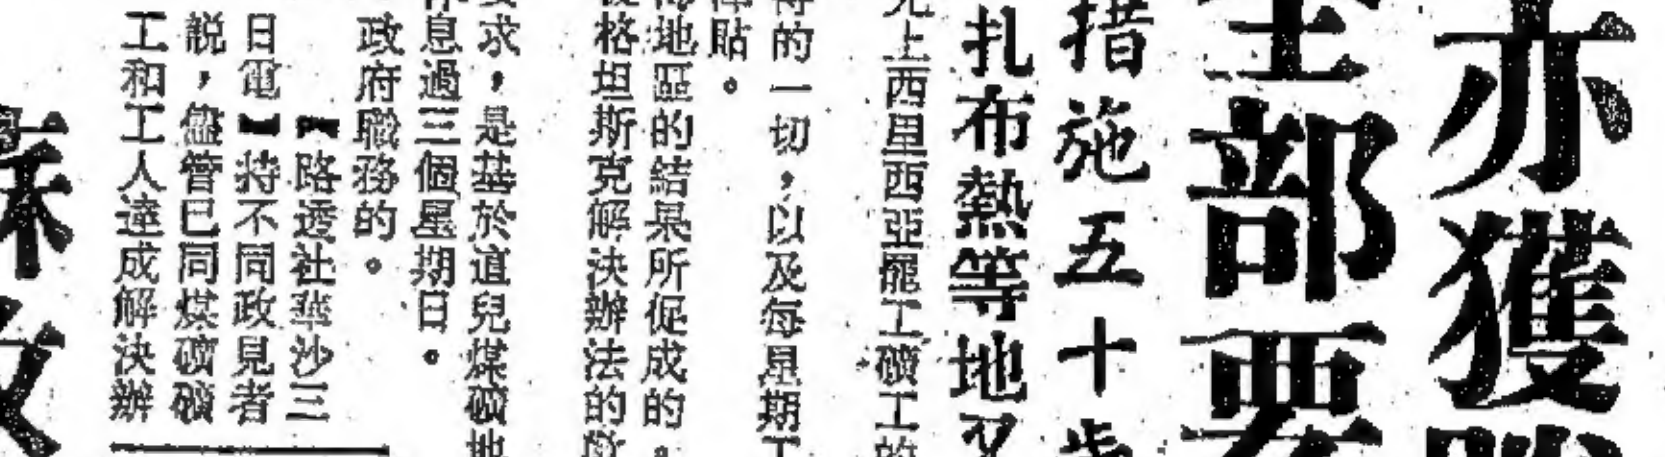 亦獲
全部要
措施五十歲
扎布熱等地又
上西里西亞罷工礦工的
得的一切，以及每星期工
津貼。
地區的結果所促成的。
格坦斯克解決辦法的
求，是基於道兒煤礦地
休息過三個星期日。
政府職務的。
【路透社華沙三
日電】持不同政見者
説，儘管已同煤礦礦
工和工人達成解決辦
蘇